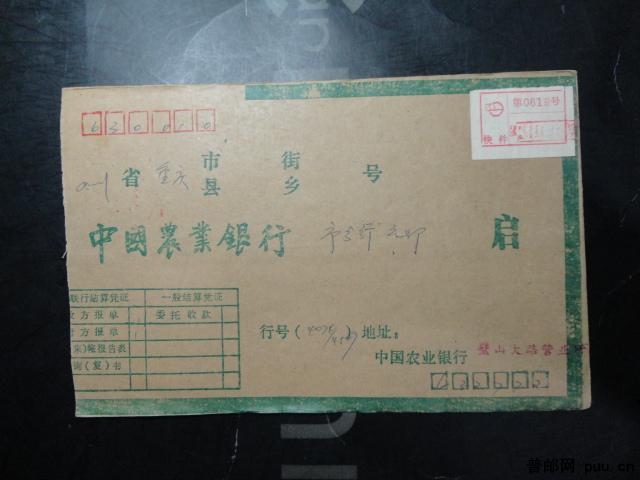 630010
第0618号
快件
川省重庆市县街乡号
中國農業銀行 启
联行结算凭证 一般结算凭证
方报单 委托收款
方报单
帐报告表
(复)书
行号( )地址:
中国农业银行 璧山大路营业
普邮网 puu.cn